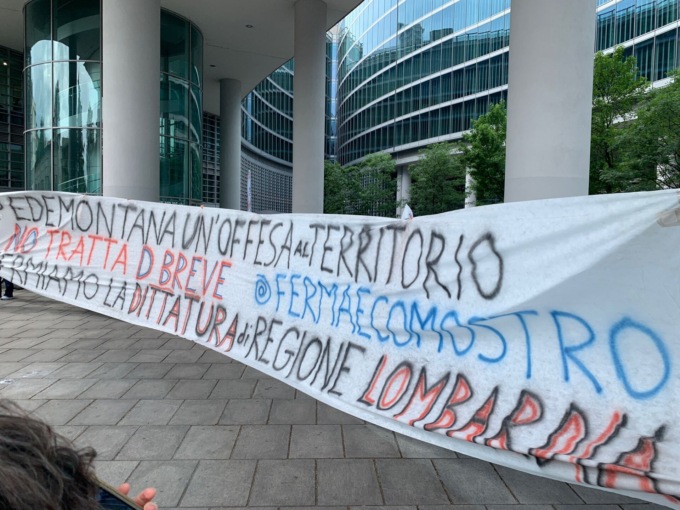 PEDEMONTANA UN'OFFESA AL TERRITORIO
NO TRATTA D BREVE @FERMAECOMOSTRO
FERMIAMO LA DITTATURA di REGIONE LOMBARDIA